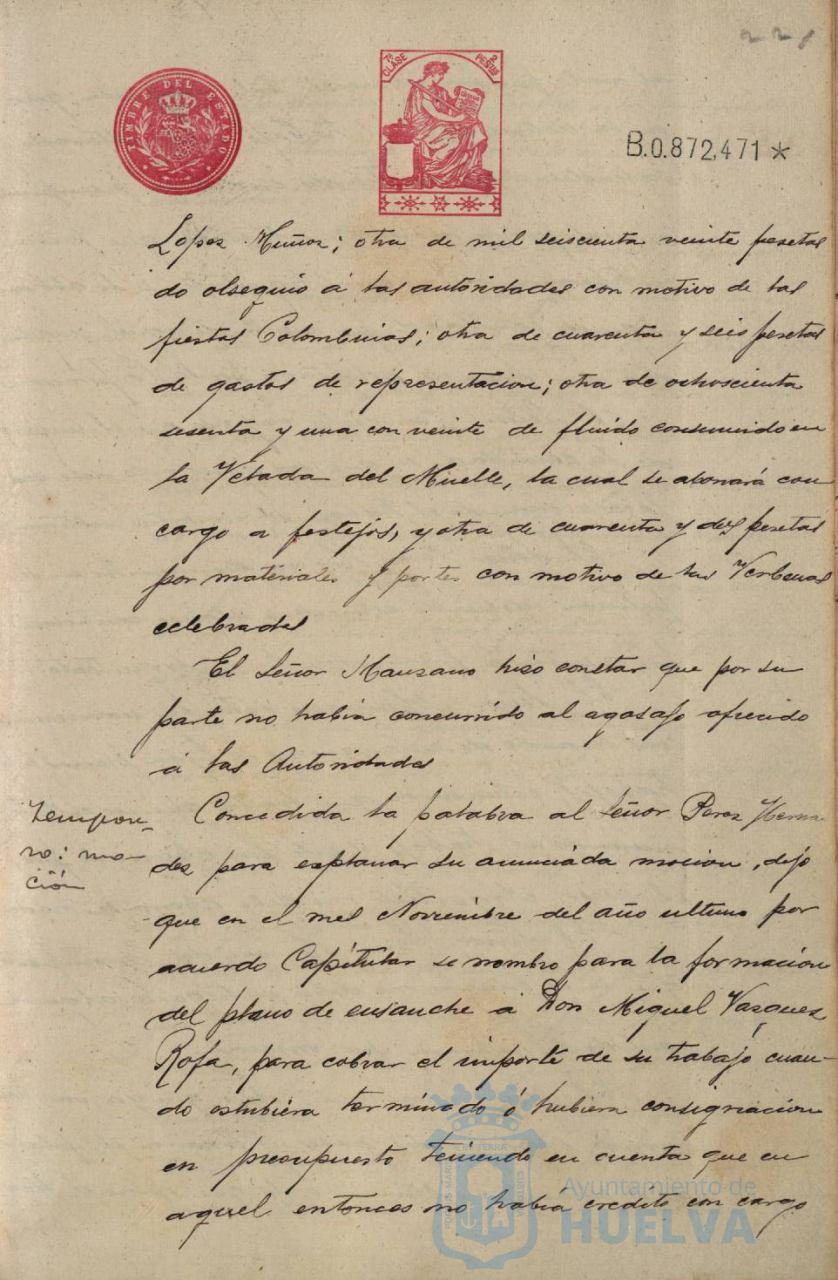 228
TIMBRE DEL ESTADO
7ª CLASE
2 PESETAS
B.0.872,471 *
Lopez Muñoz; otra de mil seiscienta veinte pesetas
do obsequio á las autoridades con motivo de las
fiestas Colombinas; otra de cuarenta y seis pesetas
de gastos de representacion; otra de ochoscienta
sesenta y una con veinte de fluido consumido en
la Velada del Muelle, la cual se abonará con
cargo a festejos, y otra de cuarenta y dos pesetas
por materiales y portes con motivo de las Verbenas
celebradas
El Señor Manzano hizo constar que por su
parte no habia concurrido al agasajo ofrecido
á las Autoridades
Concedida la palabra al Señor Perez Hernan
dez para explanar su anunciada mocion, dijo
que en el mes Noviembre del año ultimo por
acuerdo Capitular se nombro para la formacion
del plano de ensanche á Don Miguel Vazquez
Rofa, para cobrar el importe de su trabajo cuan-
do estubiera terminado ó hubiera consignacion
en presupuesto teniendo en cuenta que en
aquel entonces no habia credito con cargo
ro: mo-
ción
Ayuntamiento de
HUELVA